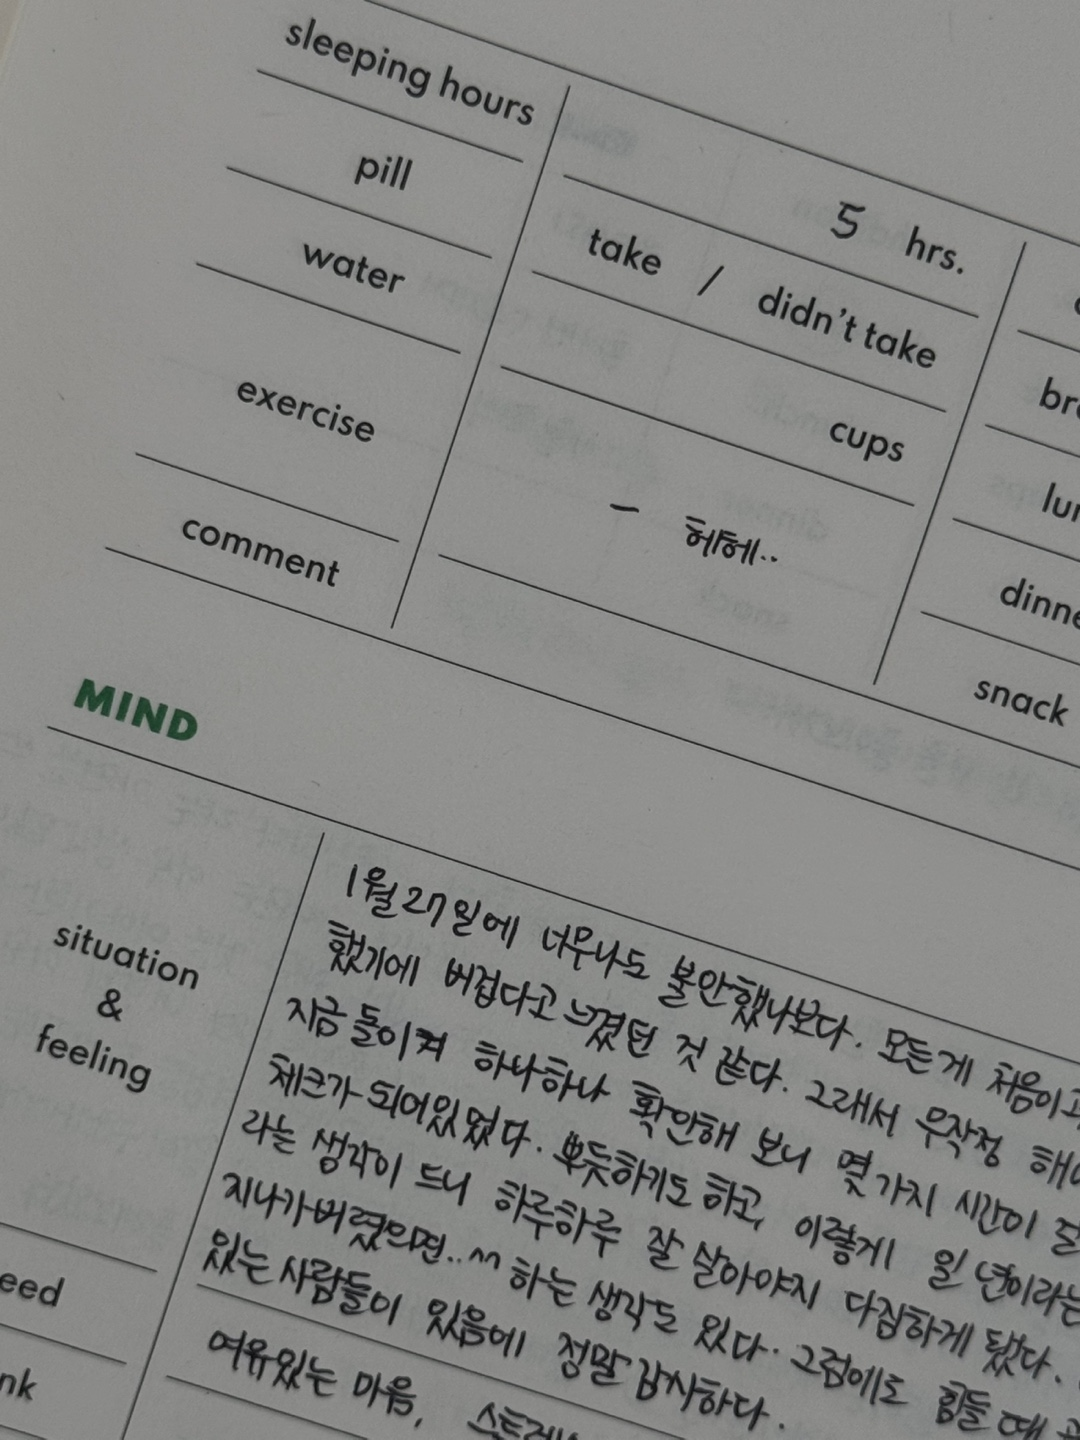 sleeping hours
5 hrs.
pill
take / didn't take
water
cups
exercise
- 허헤..
comment
lun
dinne
snack
MIND
situation
&
feeling
1월 27일에 너무나도 불안했나보다. 모든게 처음이고
했기에 버겁다고 느꼈던 것 같다. 그래서 무작정 해
지금 돌이켜 하나하나 확인해 보니 몇가지 시간이
체크가 되어있었다. 뿌듯하기도 하고, 이렇게 일 년이라는
라는 생각이 드니 하루하루 잘 살아야지 다짐하게 됐다.
지나가버렸으면.. ^^ 하는 생각도 있다. 그럼에도 힘들 때
있는 사람들이 있음에 정말 감사하다.
eed
여유있는 마음,
nk